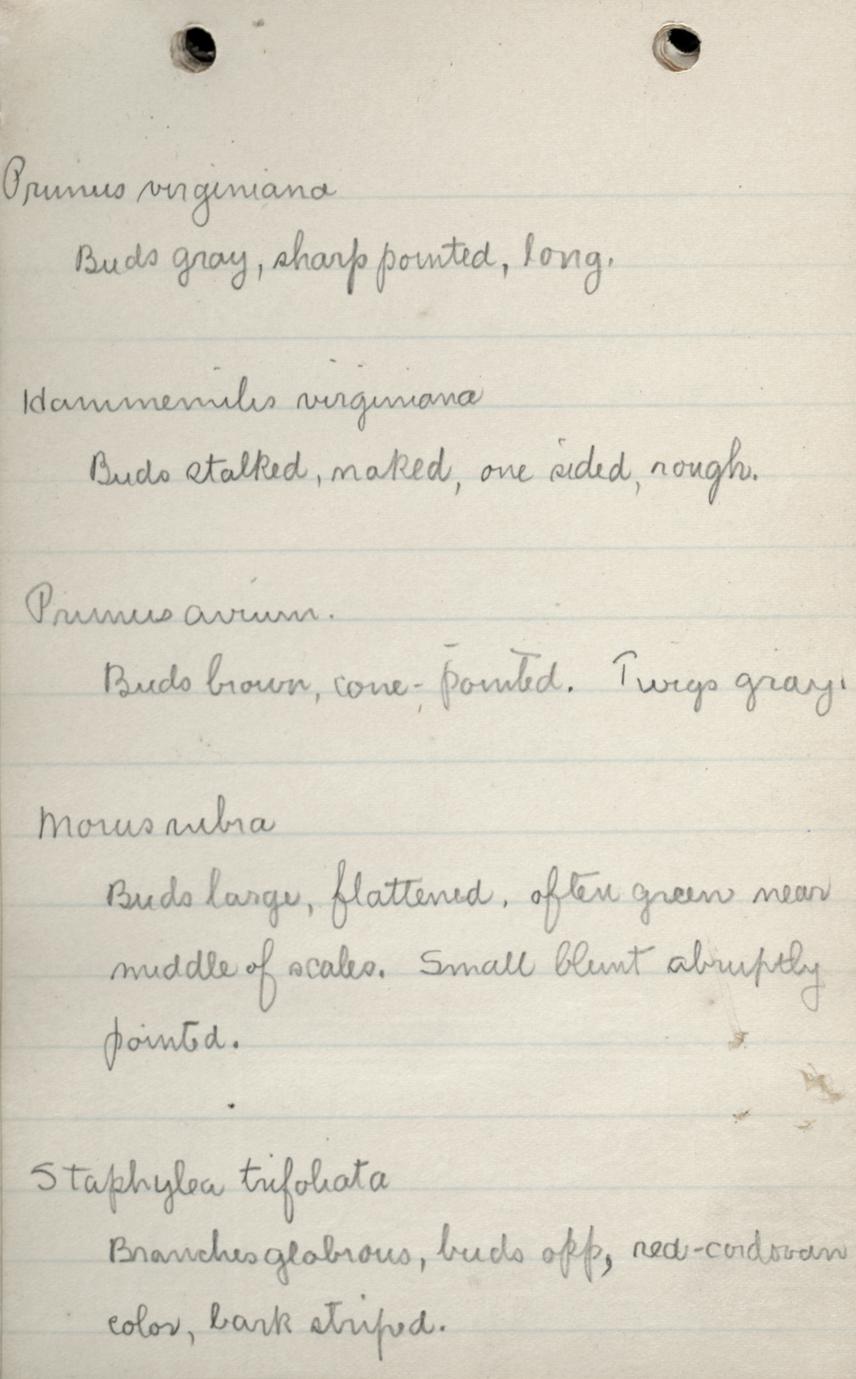 Prunus virginiana
Buds gray, sharp pointed, long.
Hammemilis virginiana
Buds stalked, naked, one sided, rough.
Prunus avium.
Buds brown, cone-pointed. Twigs gray.
Morus rubra
Buds large, flattened, often green near
middle of scales. Small blunt abruptly
pointed.
Staphylea trifoliata
Branches glabrous, buds opp, red-cordovan
color, bark striped.